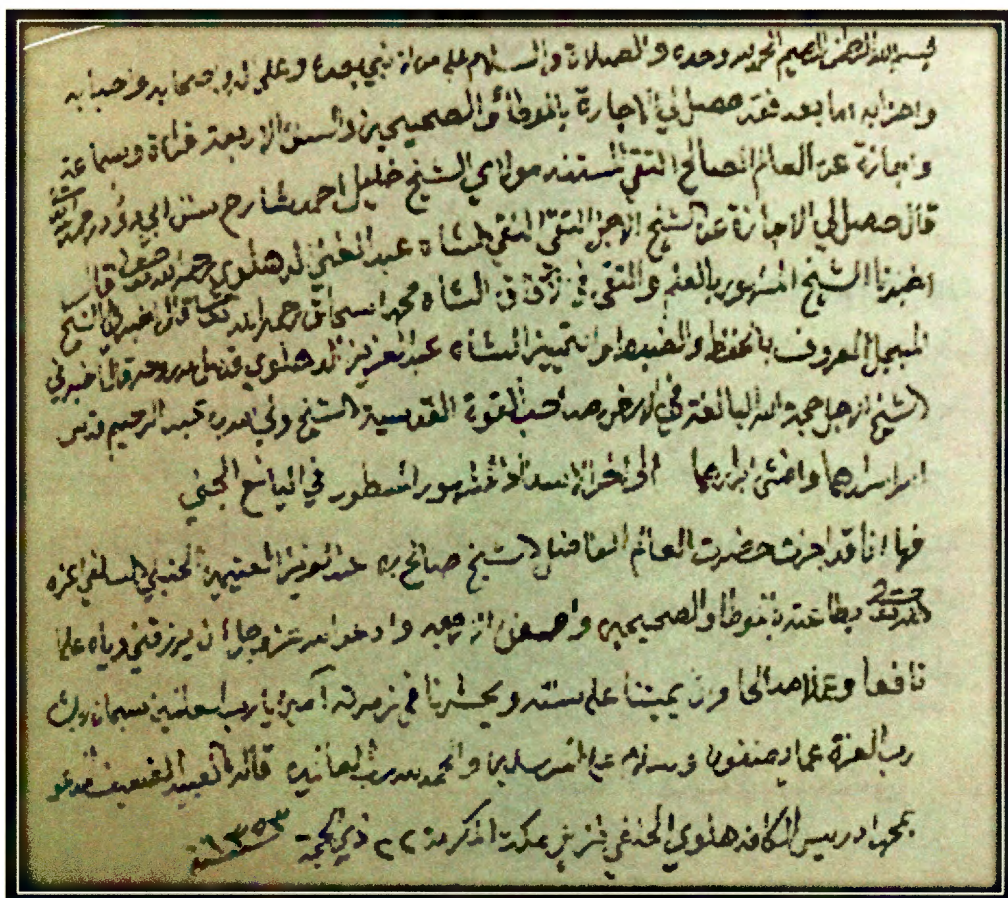 بسم الله الرحمن الرحيم الحمد لله وحده والصلاة والسلام على من لا نبي بعده وعلى آله وأصحابه وأحبابه
وأحزابه أما بعد فقد حصل لي الإجازة بالموطأ والصحيحين والسنن الأربعة قراءة وسماعة
وإجازة عن العالم الصالح التقي المستند مولاي الشيخ خليل أحمد شارح سنن أبي داود رحمه الله
قال حصل لي الإجازة عن الشيخ الأجل التقي النقي الشاه عبد الغني الدهلوي رحمه الله قال
أخبرنا الشيخ المشهور بالعلم والتقى في الآفاق الشاه محمد إسحاق رحمه الله تعالى قال أخبرني الشيخ
المبجل المعروف بالحفظ والضبط والتمييز الشاه عبد العزيز الدهلوي قدس الله روحه قال أخبرني
الشيخ الأجل حجة الله البالغة في الأرض صاحب القوة القدسية الشيخ ولي الله بن عبد الرحيم قدس
الله أسرارهما وأفشى أبرارهما إلى آخر الإسناد المشهور المسطور في اليانع الجني
فها أنا قد أجزت حضرت العالم الفاضل الشيخ صالح بن عبد العزيز العثيمين الحنبلي السلفي أعزه
الله تعالى بطاعته بالموطأ والصحيحين وأدعو الله عز وجل أن يرزقني وإياه علما
نافعا وعملا صالحا وأن يميتنا على سنته ويحشرنا في زمرته آمين يا رب العلمين سبحان ربك
رب العزة عما يصفون وسلام على المرسلين والحمد لله رب العالمين قاله العبيد الضعيف المدعو
بمحمد إدريس الكاندهلوي الحنفي نزيل مكة المكرمة ٢٢ ذي الحجة سنة ١٣٥٣